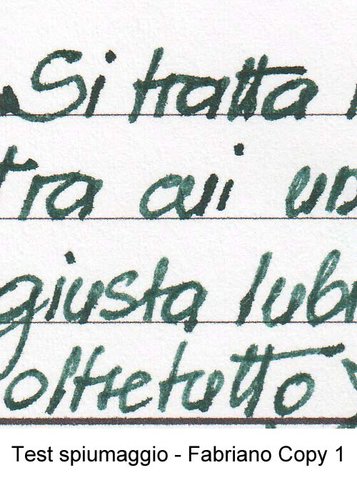 Si tratta
tra cui un
giusta lubr
oltretutto
Test spiumaggio - Fabriano Copy 1